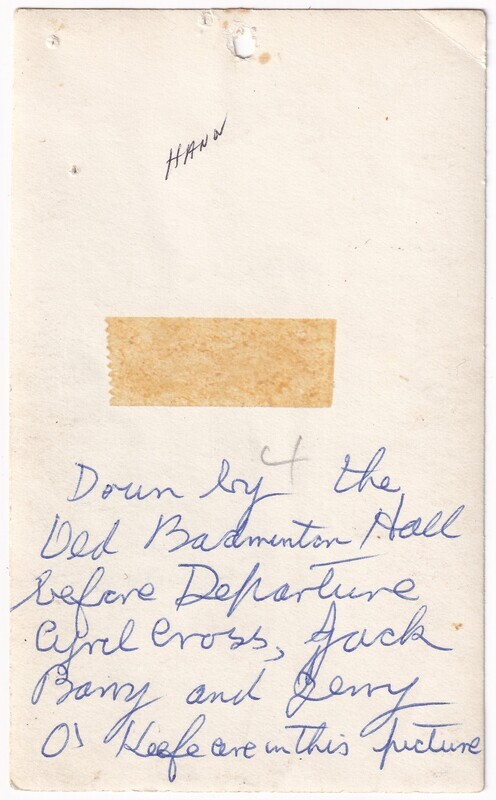 HANN
4
Down by the
Old Badminton Hall
before Departure
Cyril Cross, Jack
Barry and Gerry
O' Keefe are in this picture